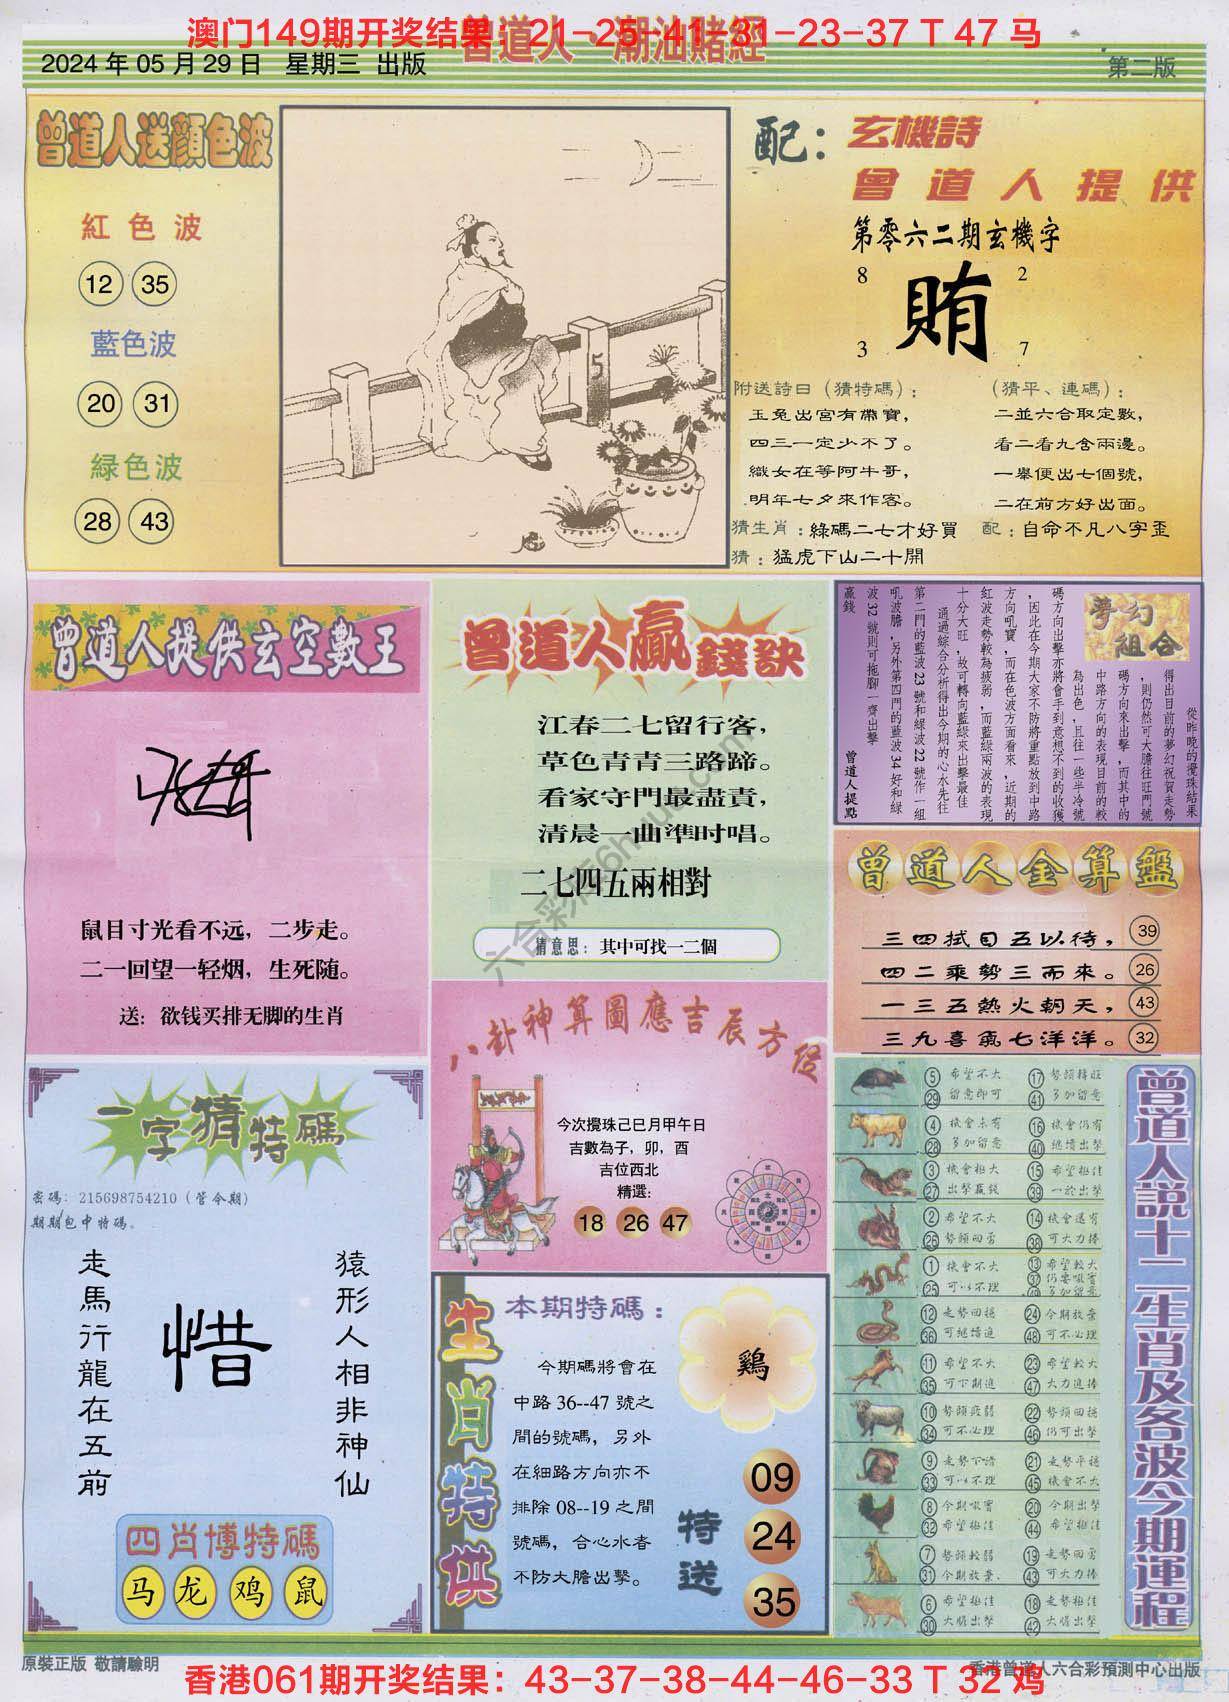 澳门149期开奖结果：21-25-41-31-23-37 T 47 马
曾道人·潮汕賭經
2024 年 05 月 29 日 星期三 出版
第二版
曾道人送顏色波
紅色波
12 35
藍色波
20 31
緑色波
28 43
5
配：
玄機詩
曾道人提供
第零六二期玄機字
8 2
賄
3 7
附送詩曰（猜特碼）：
玉兔出宮有帶寶，
四三一定少不了。
織女在等阿牛哥，
明年七夕來作客。
（猜平、連碼）：
二並六合取定數，
看二看九含兩邊。
一舉便出七個號，
二在前方好出面。
猜生肖：綠碼二七才好買
配：自命不凡八字歪
猜：猛虎下山二十開
曾道人提供玄空數王
鼠目寸光看不远，二步走。
二一回望一轻烟，生死随。
送：欲钱买排无脚的生肖
曾道人贏錢訣
江春二七留行客，
草色青青三路蹄。
看家守門最盡責，
清晨一曲準时唱。
二七四五兩相對
猜意思：其中可找一二個
夢幻
組合
從昨晚的攪珠結果
得出目前的夢幻祝賀走勢
，則仍然可大膽往旺門號
碼方向來出擊，而其中的
中路方向的表現目前的較
為出色，且往一些半冷號
碼方向出擊亦將會手到意想不到的收獲
，因此在今期大家不防將重點放到中路
方向吼寶，而在色波方面看來，近期的
紅波走勢較為疲弱，而藍綠兩波的表現
十分大旺，故可轉向藍綠來出擊最佳
通過綜合分析得出今期的心水先往
第二門的藍波 23 號和綠波 22 號作一組
吼波膽，另外第四門的藍波 34 好和綠
波 32 號則可拖腳一齊出擊
贏錢
曾道人提點
曾道人金算盤
三四拭目五以待， 39
四二乘勢三而來。 26
一三五熱火朝天， 43
三九喜氣七洋洋。 32
八卦神算圖應吉辰方位
今次攪珠己巳月甲午日
吉數為子，卯，酉
吉位西北
精選:
18 26 47
一字猜特碼
密碼: 215698754210 (管令期)
期期包中特碼。
猿形人相非神仙
惜
走馬行龍在五前
四肖博特碼
马 龙 鸡 鼠
生肖特供
本期特碼：
今期碼將會在
中路 36--47 號之
間的號碼，另外
在細路方向亦不
排除 08--19 之間
號碼，合心水者
不防大膽出擊。
鷄
特送
09
24
35
曾道人說十二生肖及各波今期運程
5 希望不大 17 勢頭轉旺
29 留意即可 41 多加留意
4 機會未有 16 機會仍有
28 多加留意 40 繼續出擊
3 機會極大 15 希望極佳
27 出擊贏錢 39 一於出擊
2 希望不大 14 機會還有
26 勢頭回勇 38 可大力捧
1 機會不大 13 希望較大
25 可以不理
12 走勢回穩 24 今期放棄
36 可繼續追 48 可不必理
11 希望不大 23 希望較大
35 可下期追 47 大力追捧
10 勢頭疲弱 22 勢頭回穩
34 可不必理 46 仍可出擊
9 走勢下滑 21 走勢平穩
33 可以不理 45 機會不大
8 今期吼寶 20 今期出擊
32 希望極佳 44 希望極佳
7 勢頭較弱 19 走勢回勇
31 今期放棄、 43 可大力捧
6 希望極佳 18 走勢極佳
30 大膽出擊 42 大膽出擊
原裝正版 敬請驗明
香港061期开奖结果：43-37-38-44-46-33 T 32 鸡
香港曾道人六合彩預測中心出版